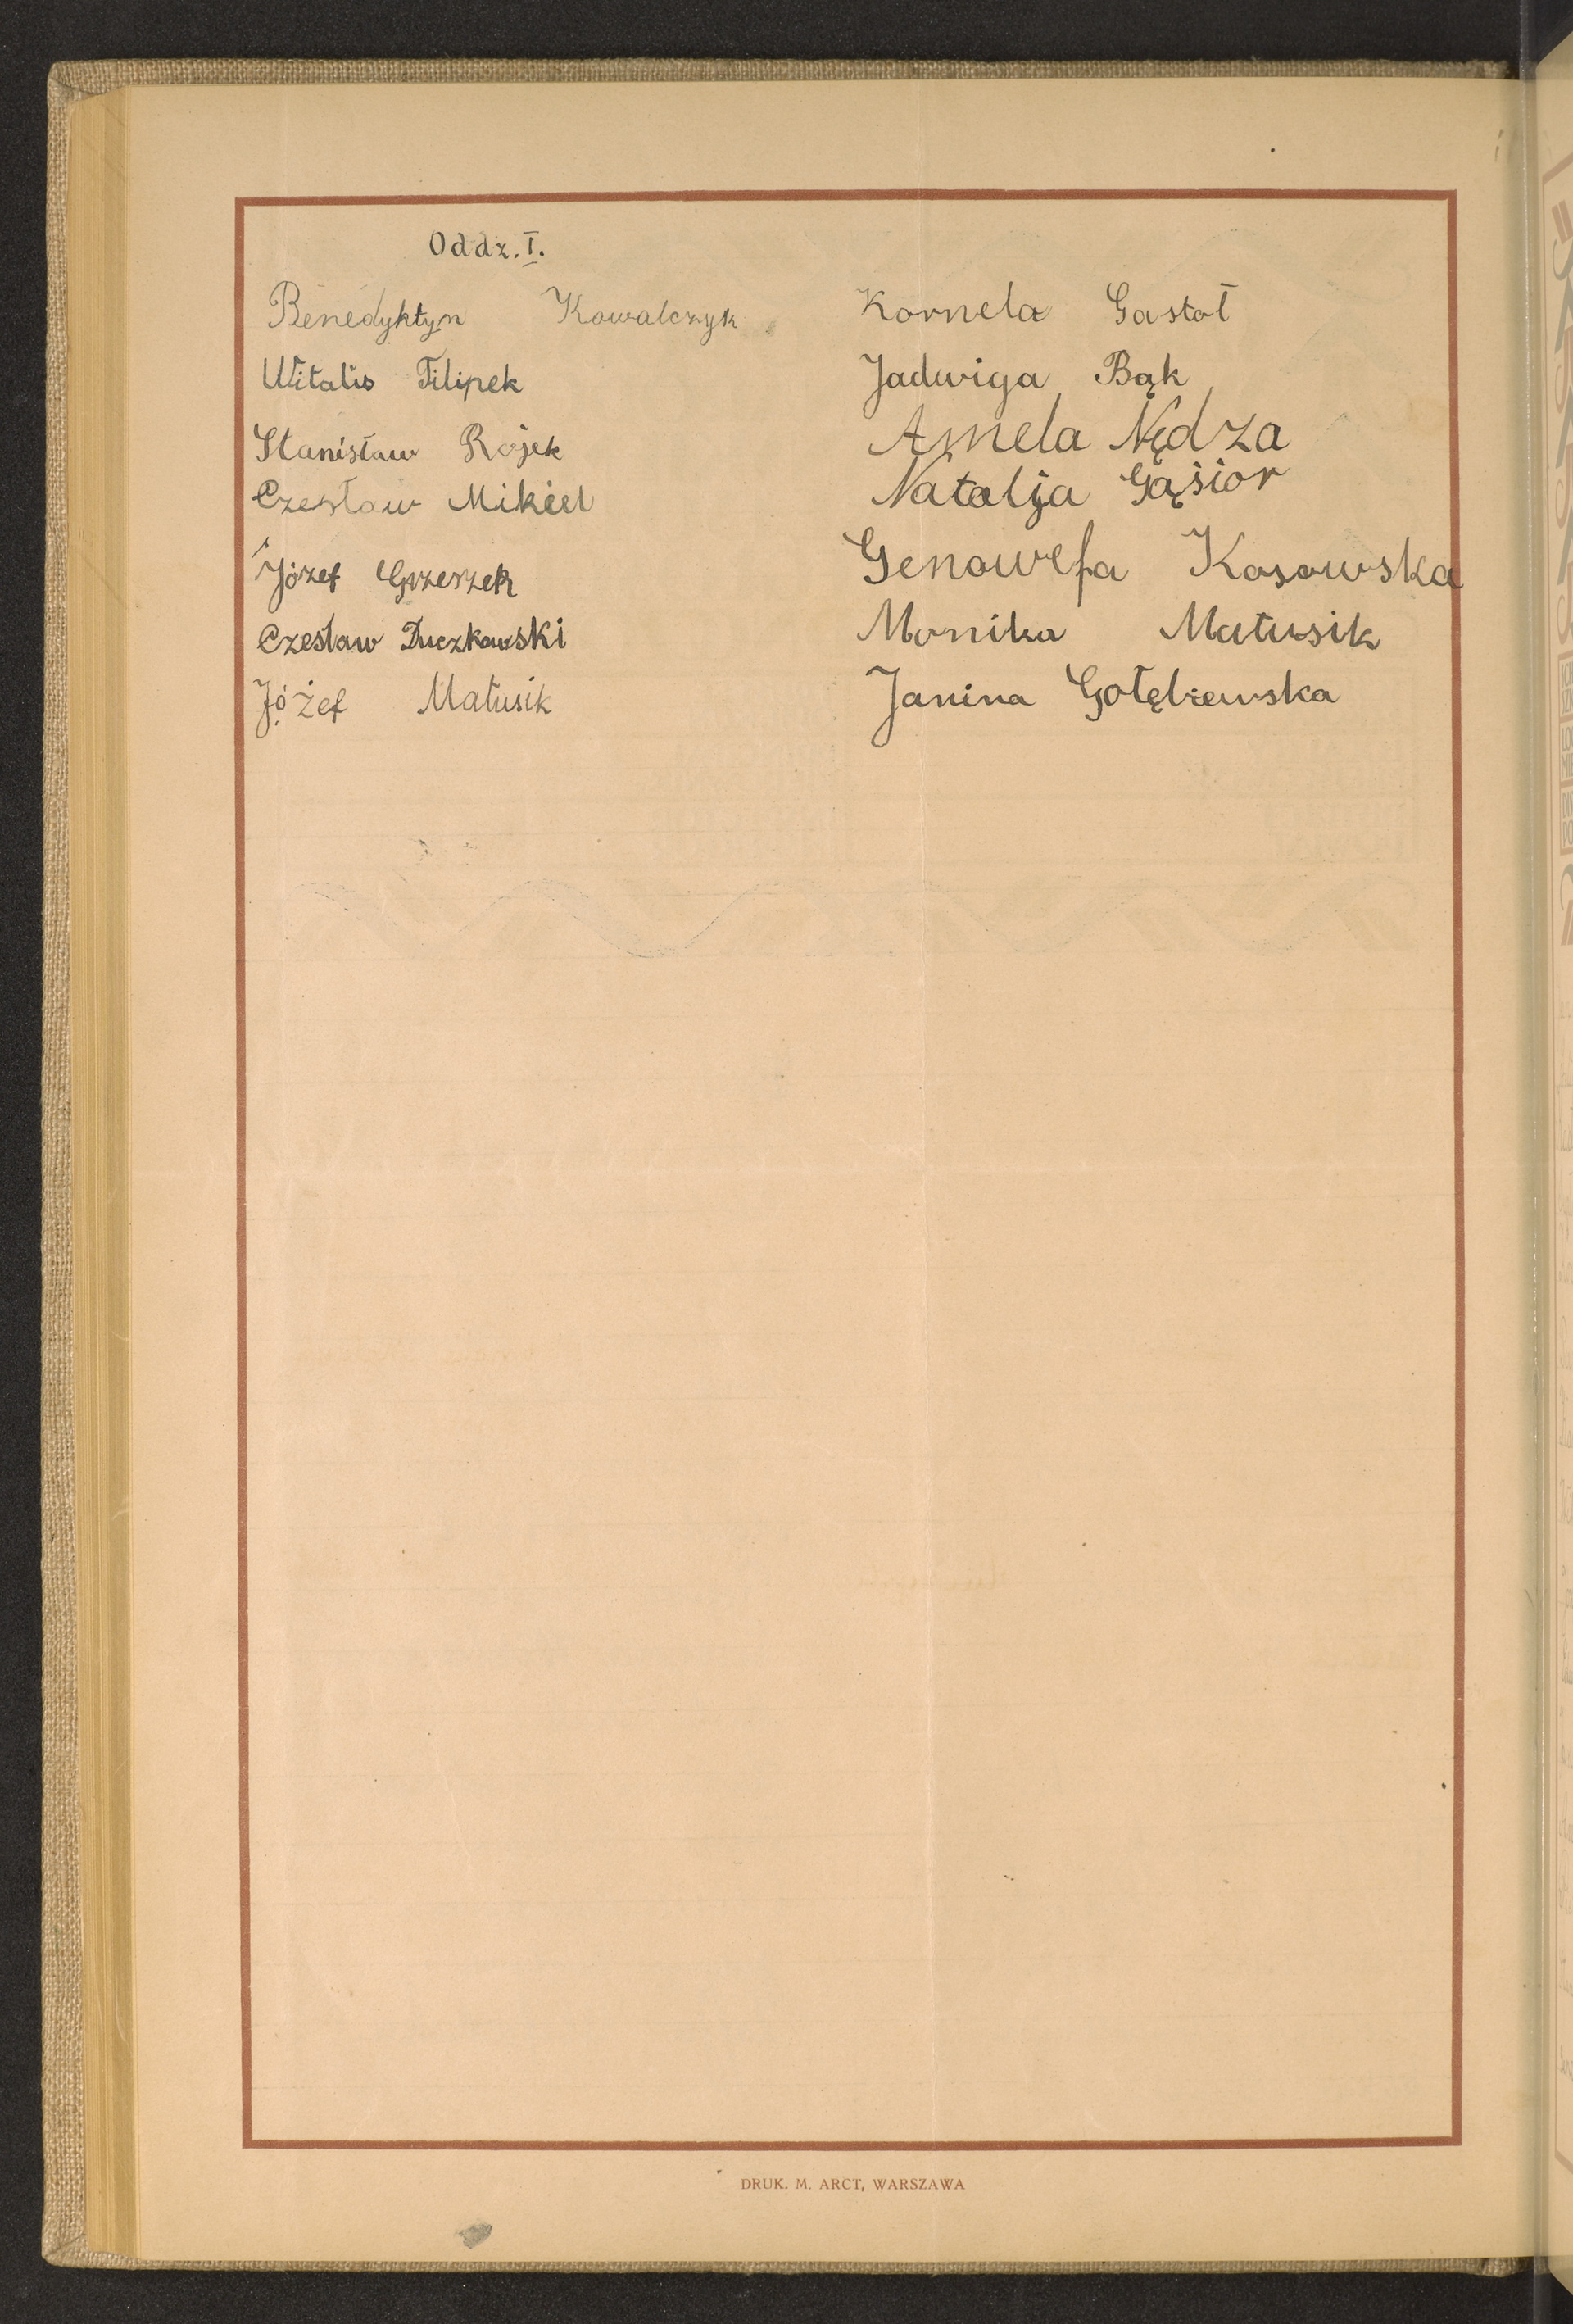 Oddz. I.
Benedyktyn Kowalczyk
Witalis Filipek
Stanisław Rojek
Czesław Mikiel
Józef Grzeszek
Czesław Duczkowski
Józef Matusik
Kornela Gastoł
Jadwiga Bąk
Amela Nędza
Natalja Gąsior
Genowefa Kosowska
Monika Matusik
Janina Gołębiewska
DRUK. M. ARCT, WARSZAWA